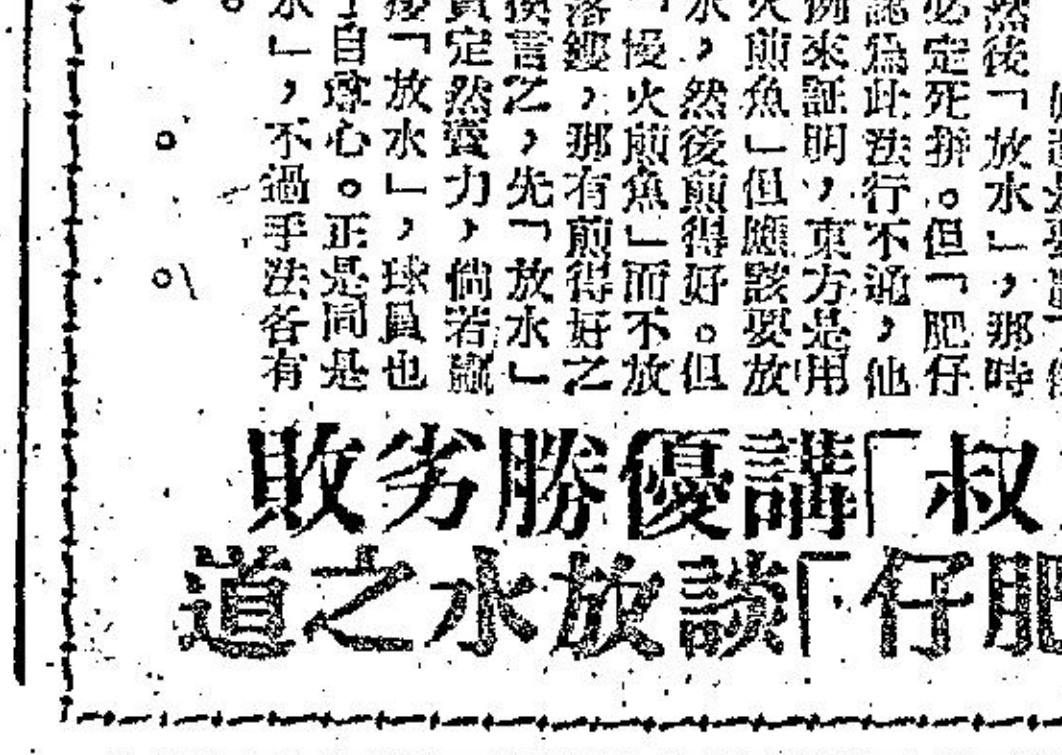 然後「放水」，那時
必定死拼。但「肥仔
認為此法行不通，他
例來証明，東方是用
火煎魚」但應該要放
水，然後煎得好。但
「慢火煎魚」而不放
落鑊，那有煎得好之
換言之，先「放水」
員定然賣力，倘若贏
「放水」，球員也
自尊心。正是同是
水」，不過手法各有
叔」講優勝劣敗
肥仔」談放水之道